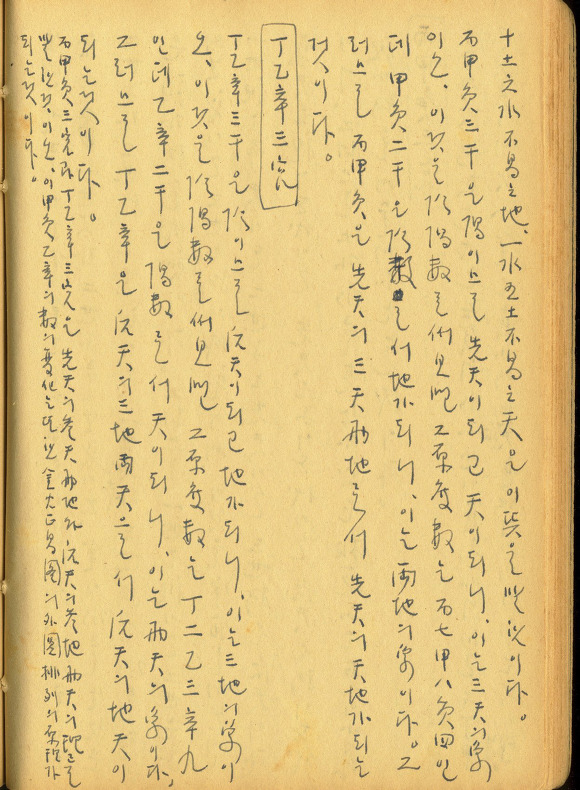 十土六水不易之地、一水五土不易之天은 이 뜻을
丙甲庚三干은 陽이므로 先天이되고 天이되니, 이는三天의象
이오, 이것을 陰陽數로써見면 그原度數는 丙七甲八庚四인
데 甲庚二干은 陰數로서 地가되니, 이는 兩地의象이다. 그
러므로 丙甲庚은 先天의 三天兩地로서 先天의天地가되는
것이다.
丁乙辛三宮
丁乙辛三干은 陰이므로 后天이되고 地가되니, 이는三地의象이
오, 이것을 陰陽數로써見면 그原度數는 丁二乙三辛九
인데 乙辛二干은 陽數로서 天이되니, 이는 兩天의象이다,
그러므로 丁乙辛은 后天의三地兩天으로서 后天의地天이
되는것이다.
丙甲庚三宮과 丁乙辛三宮은 先天의參天兩地와 后天의參地兩天의理를
이오, 이甲庚乙辛의數의變化는 金火正易圖의外圓排列의原理가
되는것이다.